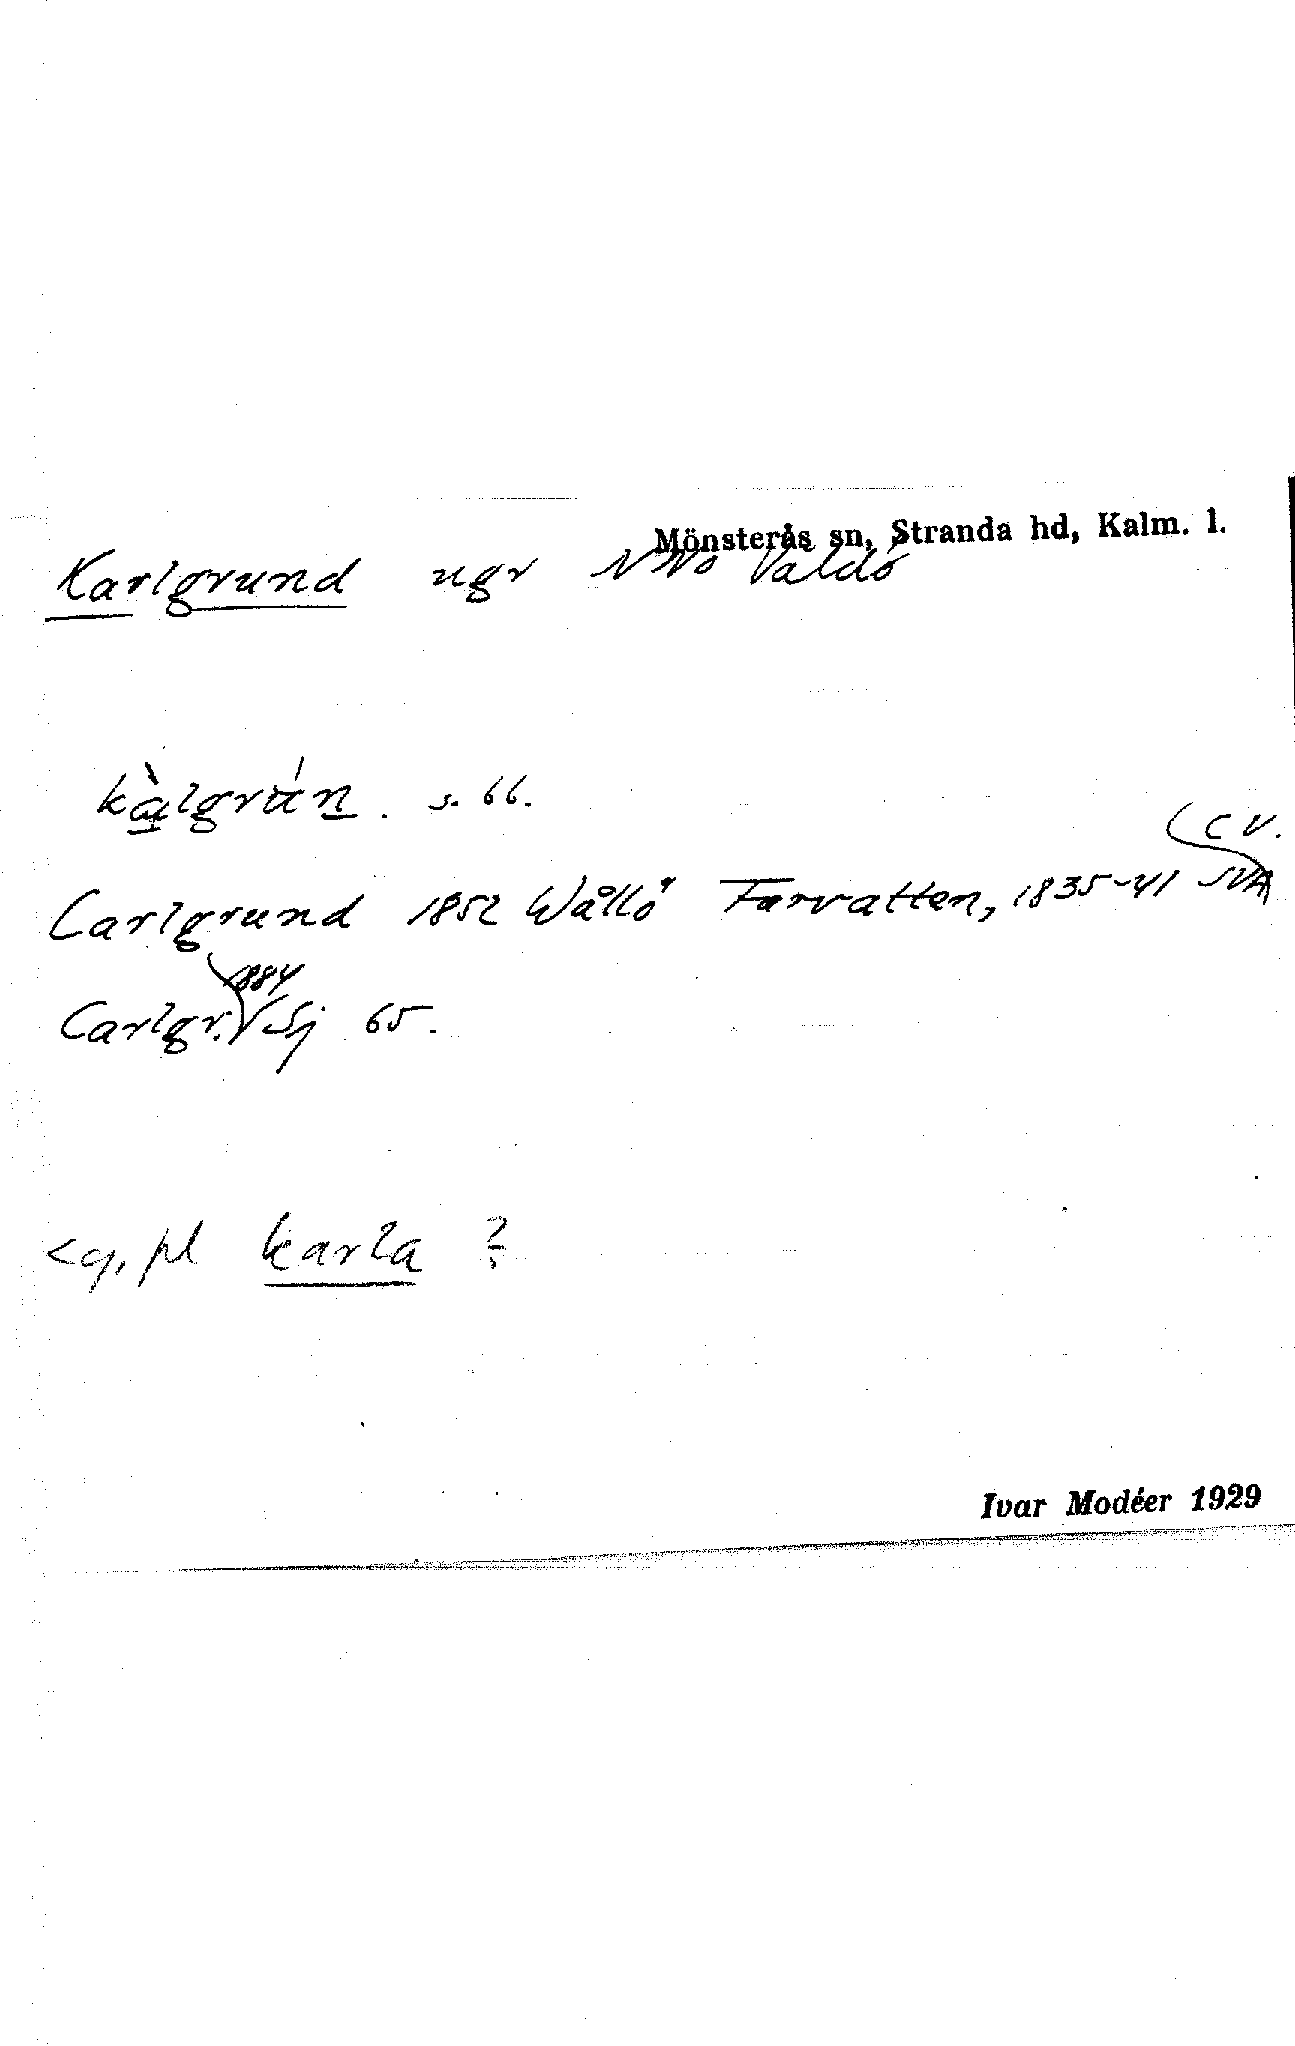 Mönsterås sn, Stranda hd, Kalm. l.
Karlgrund ugr NNO Valdö
kàlgrún. s. 66.
(c V.
Carlgrund 1852 Wållö Farvatten, 1835-41 SVA
1884
Carlgr. Sj 65.
<g, pl karla ?
Ivar Modéer 1929